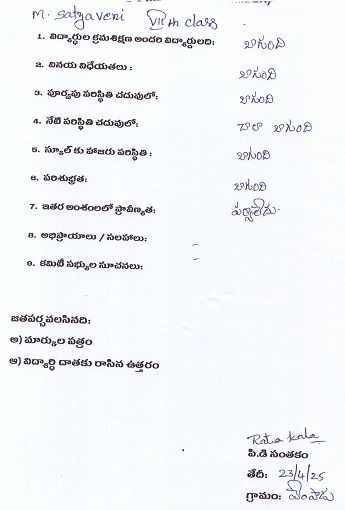 M. Satyaveni VII th class
1. విద్యార్ధుల క్రమశిక్షణ అందరి విద్యార్ధులది: బాగుంది
2. వినయ విధేయతలు : బాగుంది
3. పూర్వపు పరిస్థితి చదువులో: బాగుంది
4. నేటి పరిస్థితి చదువులో: చాలా బాగుంది
5. స్కూల్ కు హాజరు పరిస్థితి : బాగుంది
6. పరిశుభ్రత: బాగుంది
7. ఇతర అంశంలలో ప్రావీణ్యత: పర్వాలేదు
8. అభిప్రాయాలు / సలహాలు: –
9. కమిటీ సభ్యుల సూచనలు: –
జతపర్చవలసినది:
అ) మార్కుల పత్రం
ఆ) విద్యార్ధి దాతకు రాసిన ఉత్తరం
పి.డి సంతకం
తేదీ: 23/4/25
గ్రామం: